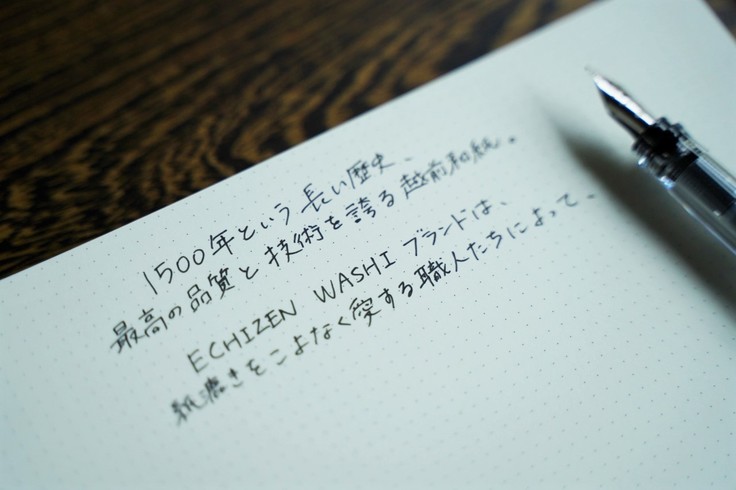 1500年という長い歴史、
最高の品質と技術を誇る越前和紙。
ECHIZEN WASHI ブランドは、
紙漉きをこよなく愛する職人たちによって、